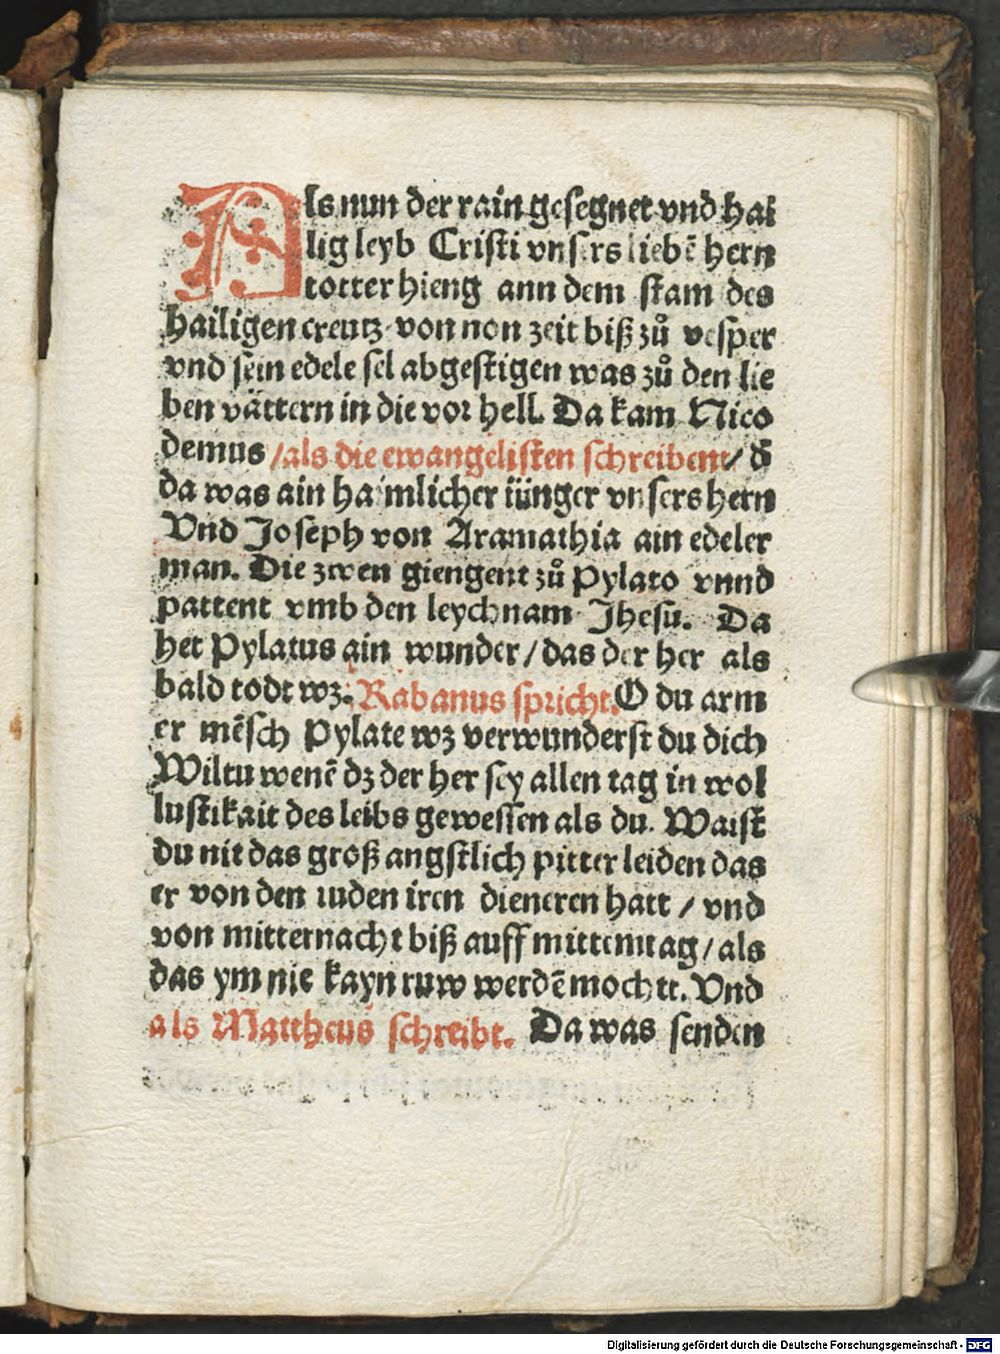 Als nun der rain gesegnet vnd hai
lig leyb Cristi vnsers liebē hern
totter hieng ann dem stam des
hailigen creutz von non zeit biß zů vesper
vnd sein edele sel abgestigen was zů den lie
ben vättern in die vor hell. Da kam Nico
demus / als die ewangelisten schreibent / d̄
da was ain haimlicher iünger vnsers hern
Vnd Joseph von Aramathia ain edeler
man. Die zwen giengent zů Pylato vnnd
pattent vmb den leychnam Jhesu. Da
het Pylatus ain wunder / das der her als
bald todt wz. Rabanus spricht. O du arm
er mēsch Pylate wz verwunderst du dich
Wiltu wenē dz der her sey allen tag in wol
lustikait des leibs gewessen als du. Waist
du nit das groß angstlich pitter leiden das
er von den iuden iren dieneren hatt / vnd
von mitternacht biß auff mittemtag / als
das ym nie kayn ruw werdē mocht. Vnd
als Mattheus schreibt. Da was senden
Digitalisierung gefördert durch die Deutsche Forschungsgemeinschaft - DFG